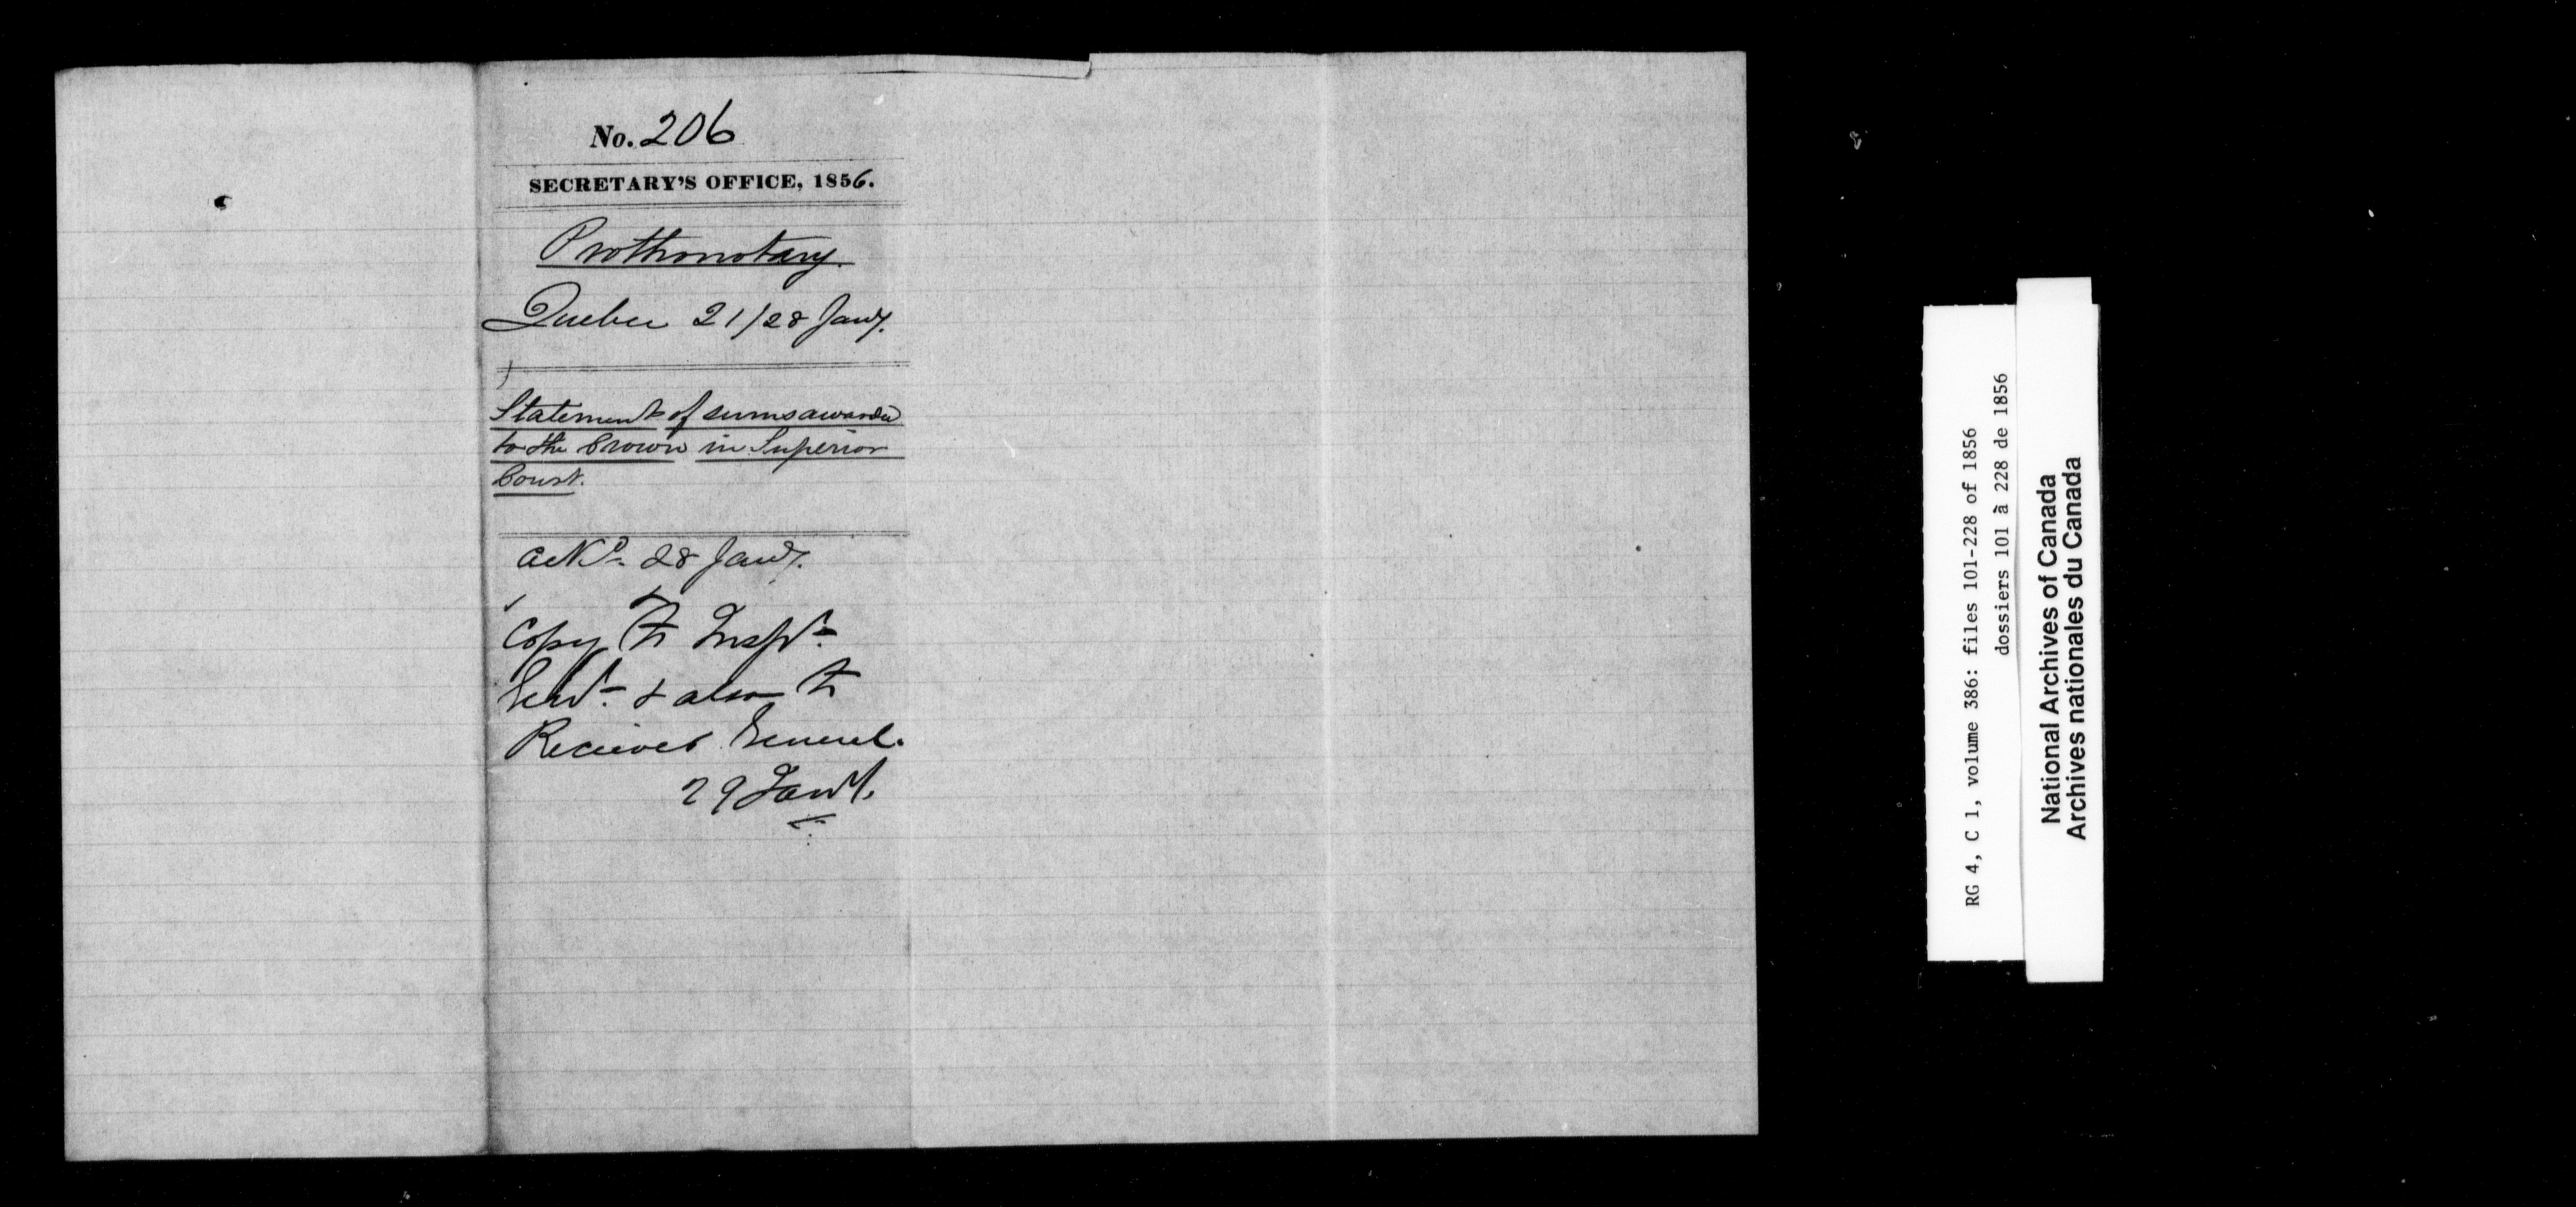 No. 206
SECRETARY'S OFFICE, 1856.
Prothonotary.
Quebec 21/28 Jany.
Statement of sums awarded
to the Crown in Superior
Court.
Ackd. 28 Jany.
Copy to Inspr.
Genl. & also to
Reciever General.
29 Jany.
RG 4, C 1, volume 386: files 101-228 of 1856
dossiers 101 à 228 de 1856
National Archives of Canada
Archives nationales du Canada